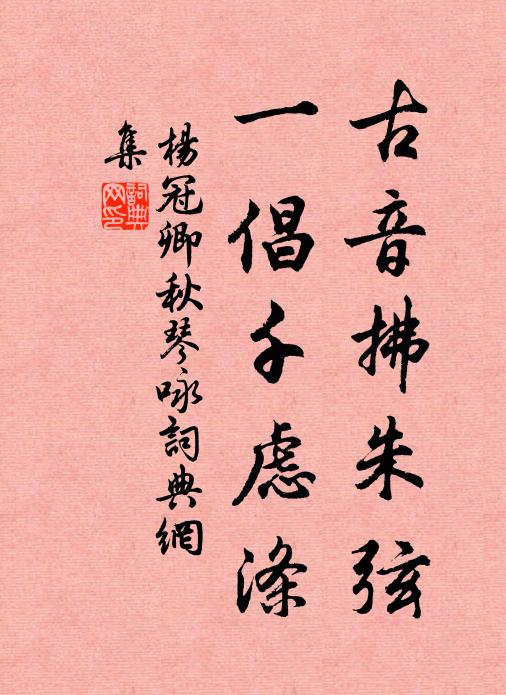 古音拂朱弦
一倡千慮滌
楊冠卿秋琴咏詞典網
集
詞典
网印